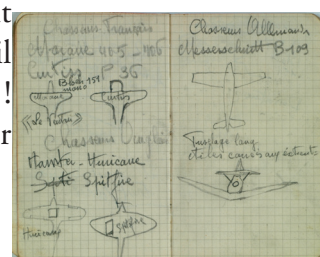 t
il
!
r
Chasseurs Français
Morane 405 - 406
Curtiss P 36
Bloch 151
mono
Morane
Curtiss
Chasseurs Anglais
Hawker - Hurricane
Spitfire
Hurricane
Spitfire
Chasseurs Allemands
Messerschmitt B-109
Fuselage long